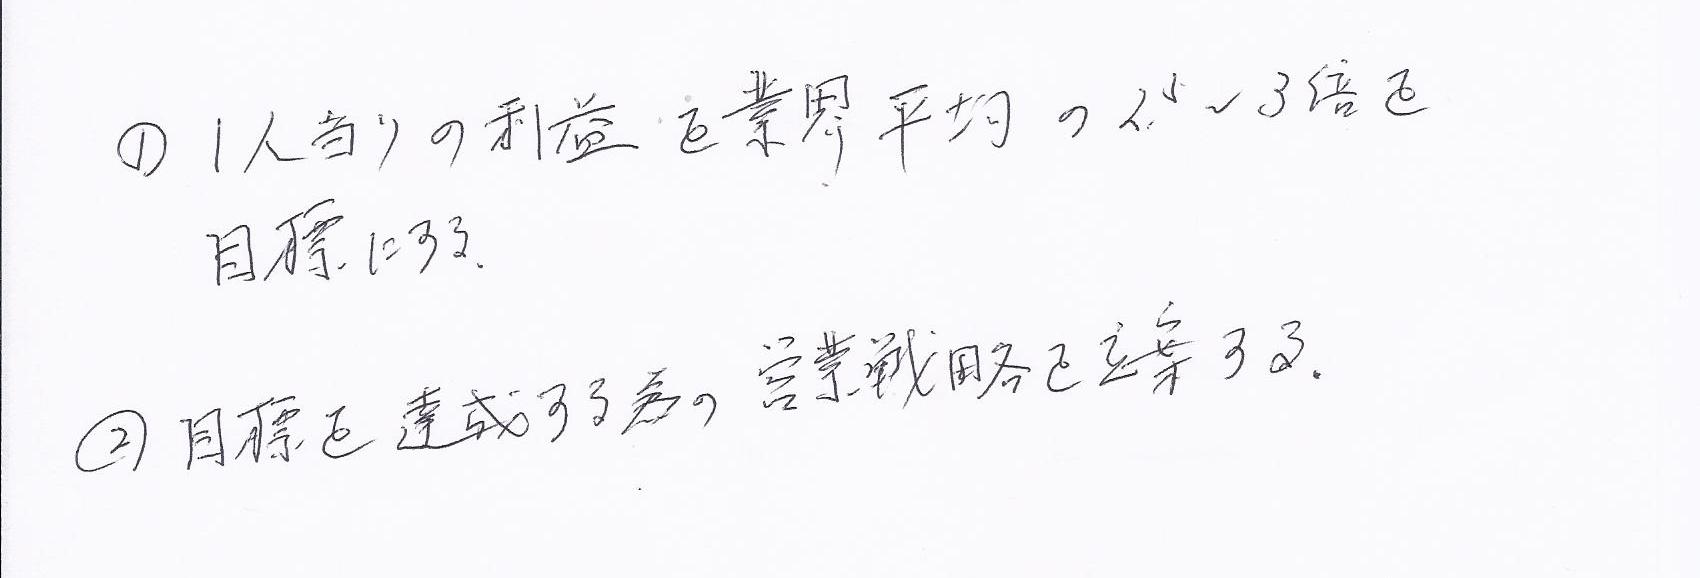 ① 1人当りの利益を業界平均の2.5~3倍を
目標にする.
② 目標を達成する為の営業戦略を立案する.